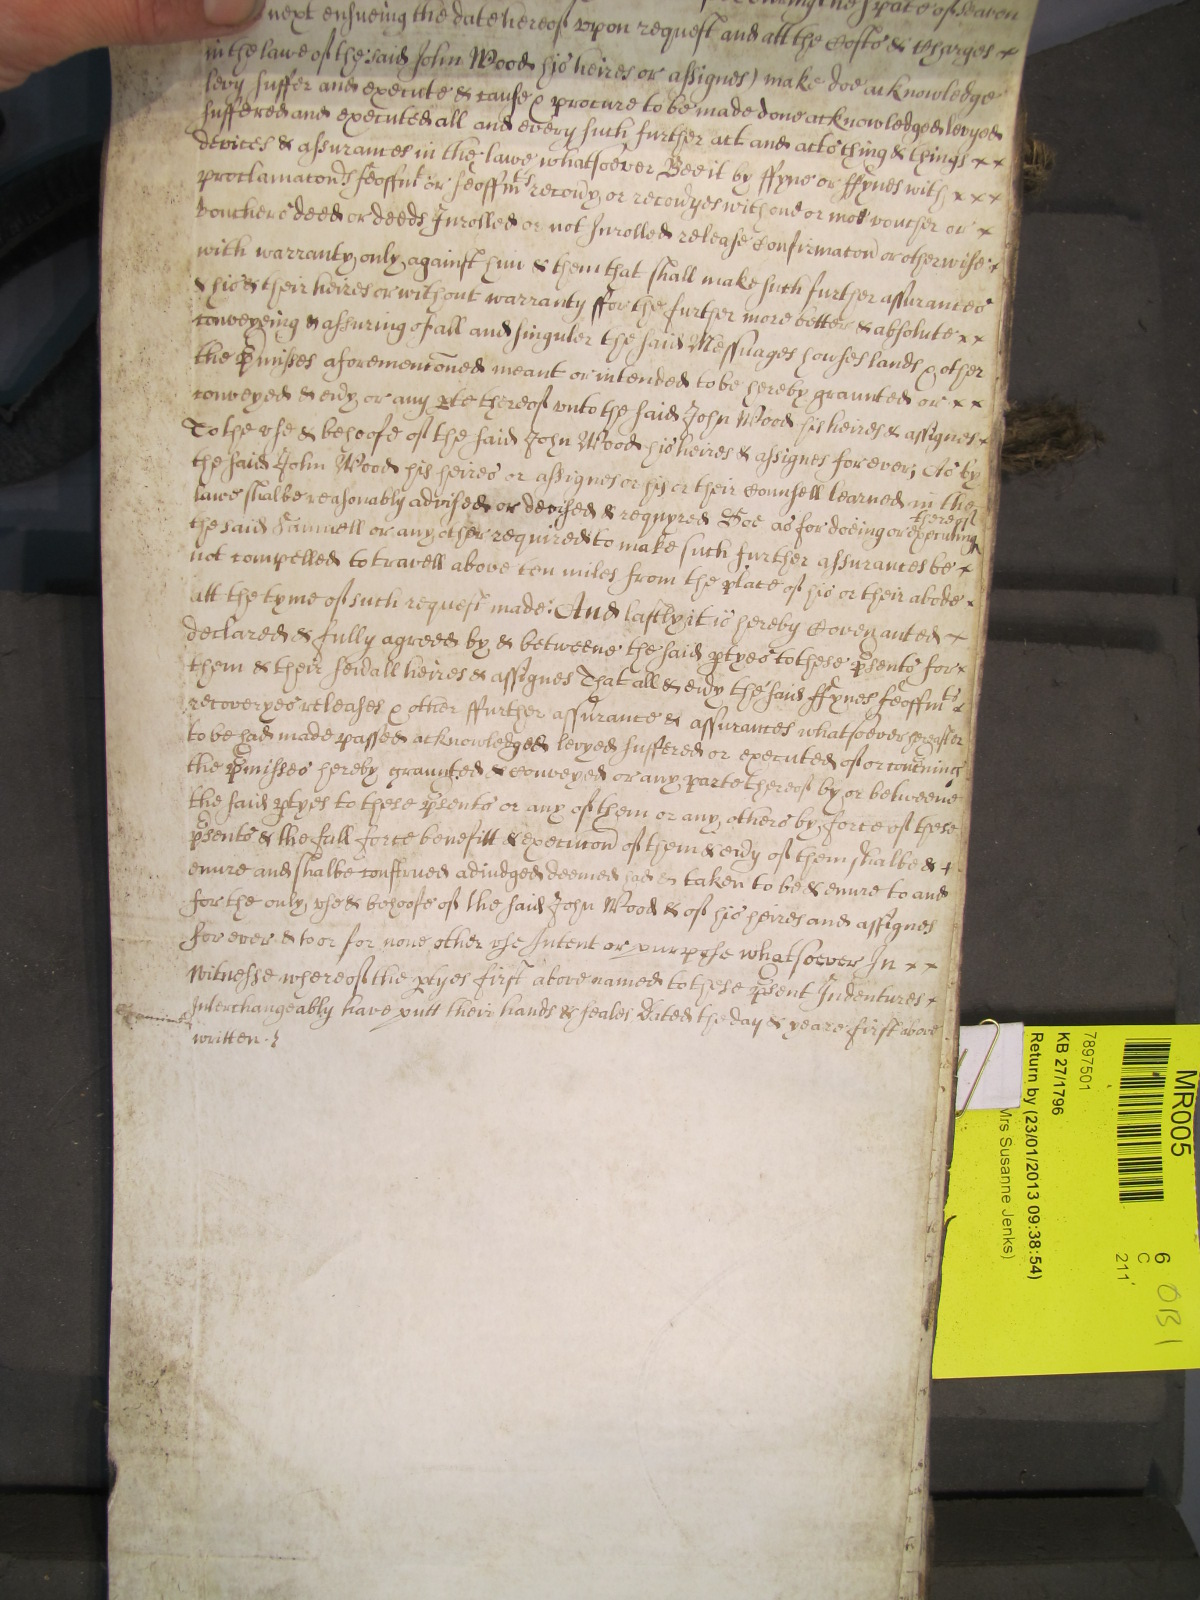 next ensueing the date hereof upon request and att the Costs & Charges x
in the lawe of the said John Wood his heires or assignes) make doe acknowledge
levy suffer and execute & cause & procure to be made done acknowledged levyed
suffered and executed all and every such further act and acts thing & things x x
devices & assurances in the lawe whatsoever Bee it by ffyne or ffynes with x x x
proclamacons feoffmt or feoffmts recovy or recovyes with one or more voucher or x
vouchers deed or deeds Inrolled or not Inrolled release Confirmacon or otherwise x
with warranty only against him & them that shall make such further assurances
& his & their heires or without warranty ffor the further more better & absolute x x
conveyeing & assuring of all and singuler the said Messuages howses lands & other
the pmisses aforemenconed meant or intended to be hereby graunted or x x
conveyed & evy or any pte thereof unto the said John Wood his heires & assignes x
To the use & behoofe of the said John Wood his heires & assignes for ever; As by
the said John Wood his heires or assignes or his or their Counsell learned in the
lawe shalbe reasonably advised or devised & requyred Soe as for doeing or executing thereof
the said Samuell or any other required to make such further assurances be x
not compelled to travell above ten miles from the place of his or their abode x
att the tyme of such request made: And lastly it is hereby Covenanted x
declared & fully agreed by & betweene the said ptyes to these psents for x
them & their sevall heires & assignes That all & evy the said ffynes feoffmts
recoveryes releases & other ffurther assurance & assurances whatsoever hereafter
to be had made passed acknowledged levyed suffered or executed of or concerning
the pmisses hereby graunted & conveyed or any parte thereof by or betweene
the said ptyes to these psents or any of them or any others by force of these
psents & the full force benefitt & execucon of them & evy of them shalbe & +
enure and shalbe construed adiudged deemed had & taken to be & enure to and
for the only use & behoofe of the said John Wood & of his heires and assignes
for ever & to or for none other use Intent or purpose whatsoever In x x
Witnesse whereof the ptyes first above named to these psent Indentures x
Interchangeably have putt their hands & seales Dated the day & yeare first above
written
MR005
7897501
KB 27/1796
Return by (23/01/2013 09:38:54)
Mrs Susanne Jenks)
6
C
211
OB1